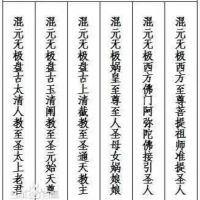 混元无极西方至尊菩提祖师准提圣人
混元无极西方佛门阿弥陀佛接引圣人
混元无极娲皇至尊至人圣母女娲娘娘
混元无极盘古上清截教至圣通天教主
混元无极盘古玉清阐教至圣元始天尊
混元无极盘古太清人教至圣太上老君